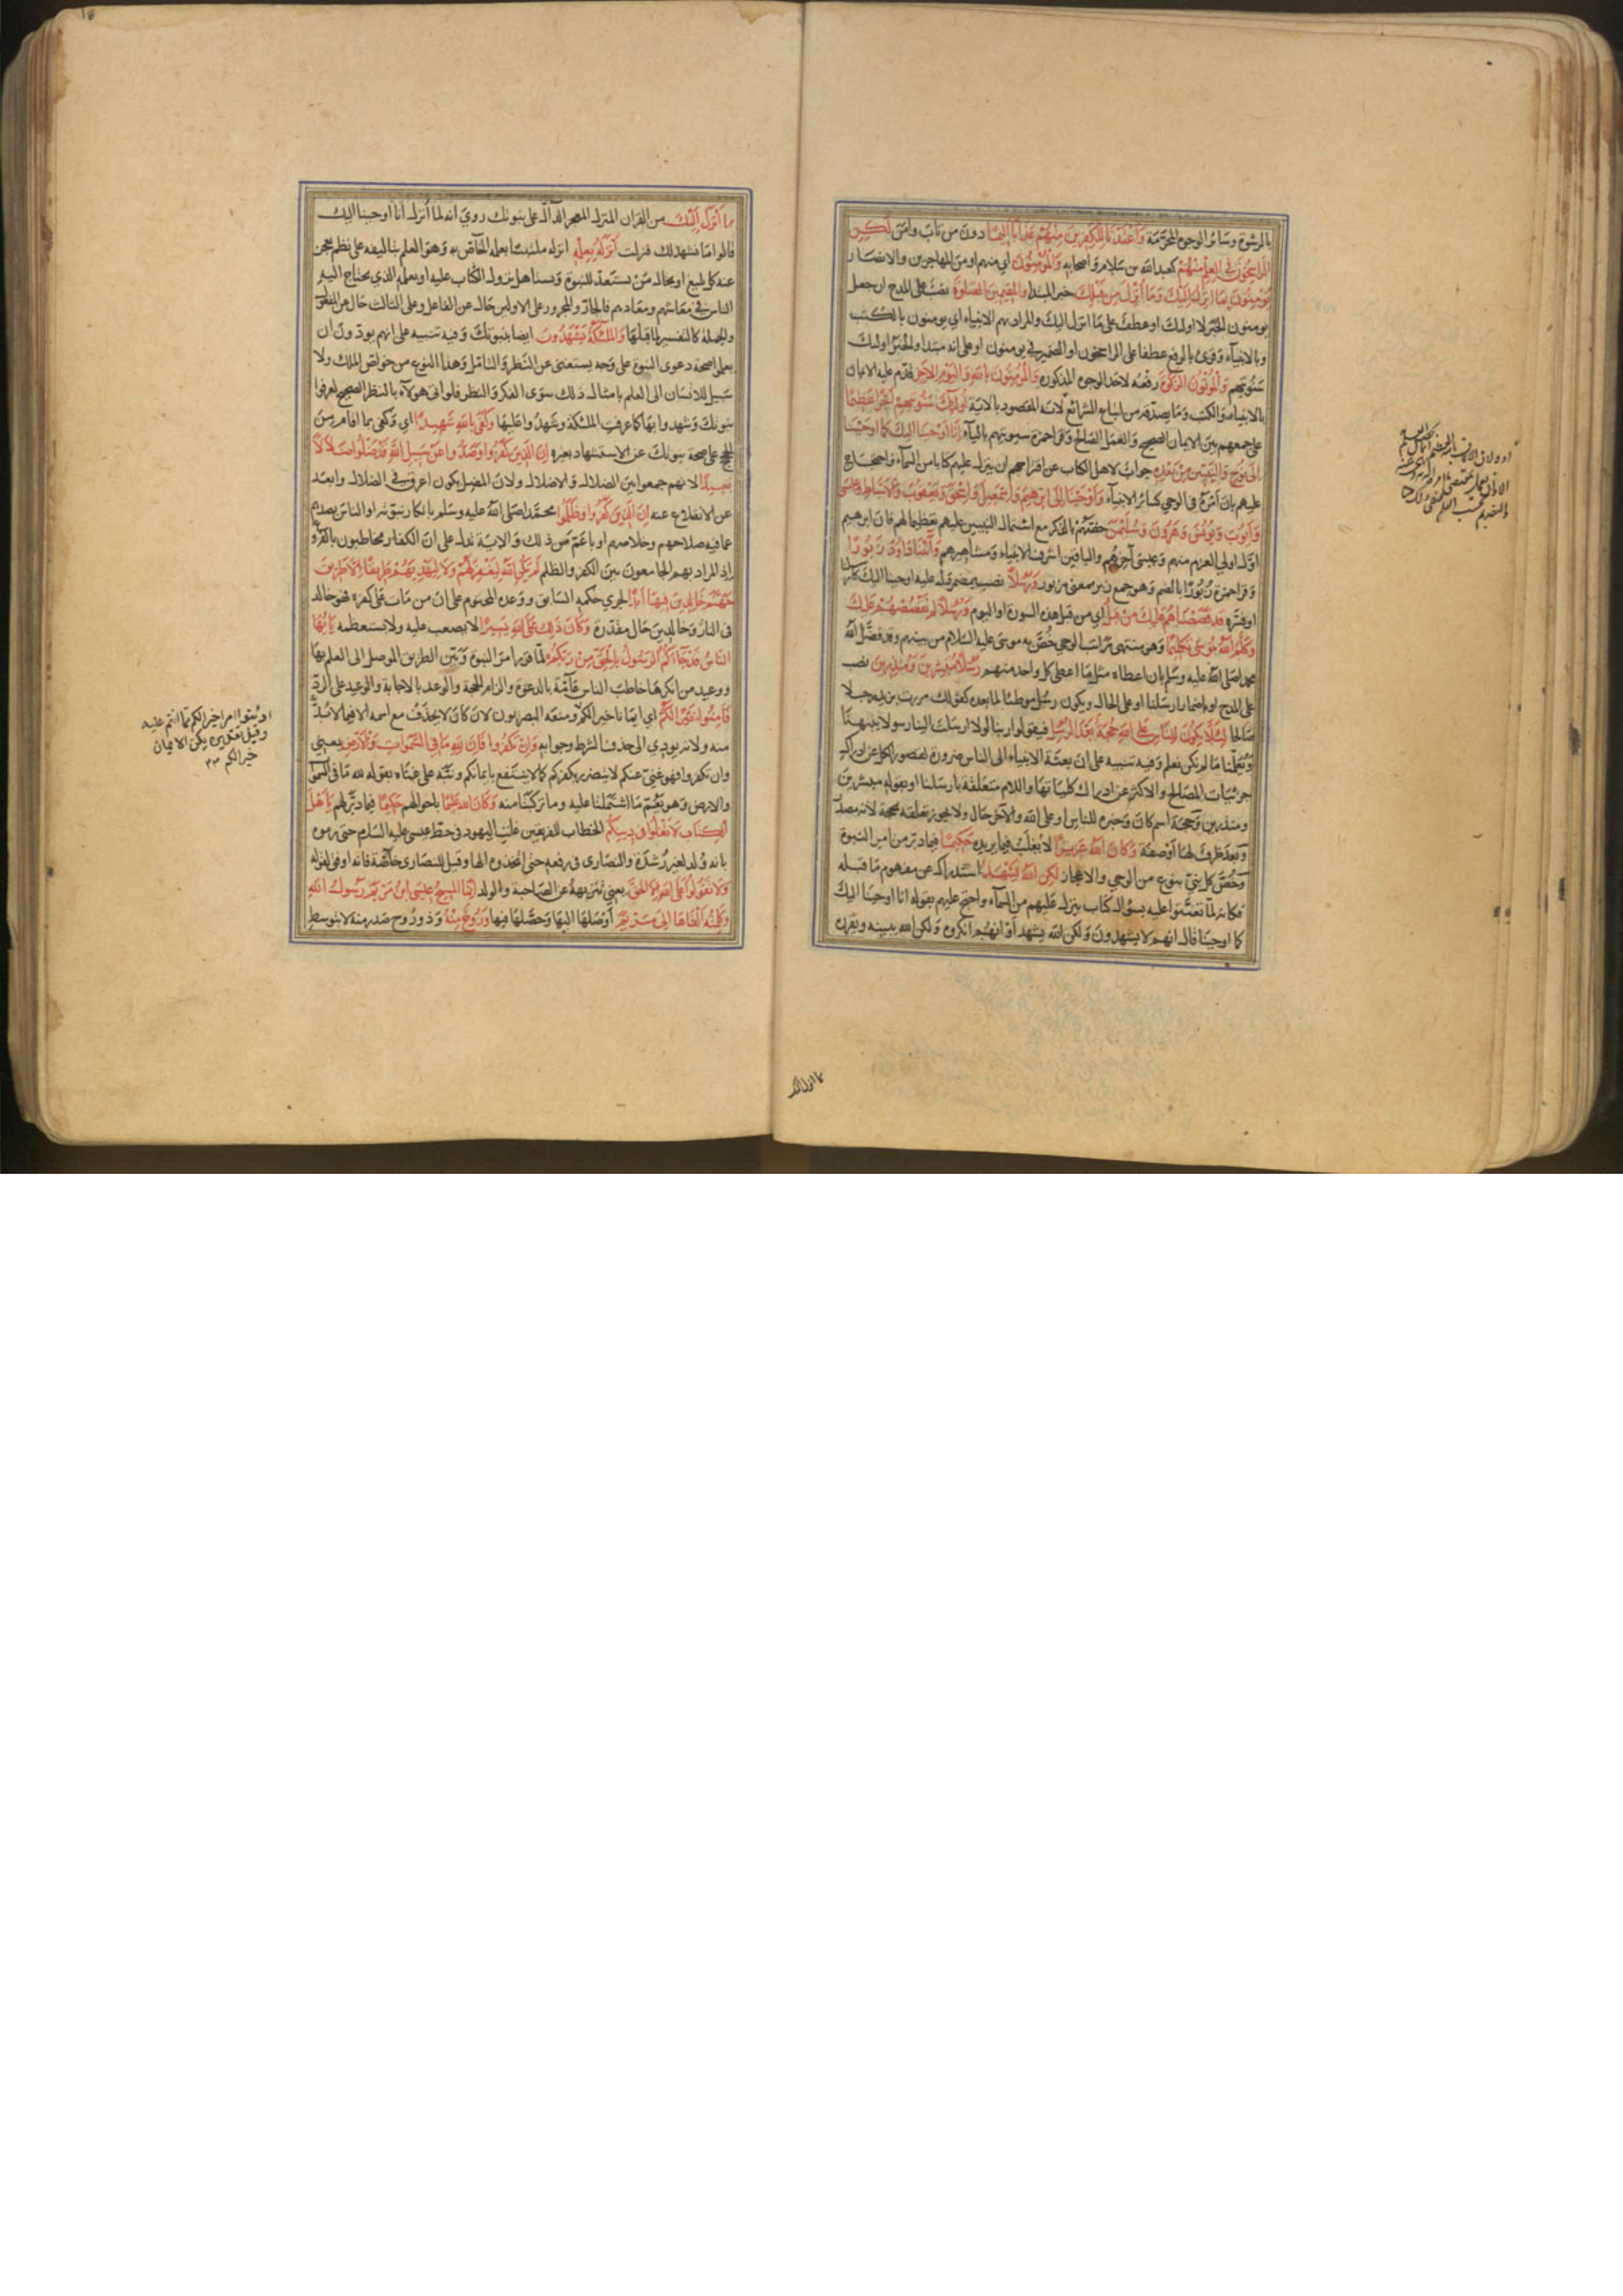 بالرشوة وسائر الوجوه المحرمة وَاَعْتَدْنَا لِلْكٰفِرِينَ مِنْهُمْ عَذَابًا اَلِيمًا دون من تاب وامن لٰكِنِ
الرَّاسِخُونَ فِى الْعِلْمِ مِنْهُمْ كعبد الله بن سلام واصحابه وَالْمُؤْمِنُونَ اي منهم او من المهاجرين والانصار
يُؤْمِنُونَ بِمَا اُنْزِلَ اِلَيْكَ وَمَا اُنْزِلَ مِنْ قَبْلِكَ خبر المبتدا وَالْمُقِيمِينَ الصَّلٰوةَ نصب على المدح ان جعل
يومنون الخبر لا اولئك او عطف على ما انزل اليك والمراد بهم الانبياء اي يومنون بالكتب
وبالانبياء وقرئ بالرفع عطفا على الراسخون او الضمير في يومنون او على انه مبتدأ والخبر اولئك
سنوتيهم وَالْمُؤْتُونَ الزَّكٰوةَ رفعه لاحد الوجوه المذكورة وَالْمُؤْمِنُونَ بِاللهِ وَالْيَوْمِ الْاٰخِرِ قدم عليه الايمان
بالانبياء والكتب وما يصدقه من اتباع الشرائع لانه المقصود بالاية اُولٰئِكَ سَنُؤْتِيهِمْ اَجْرًا عَظِيمًا
على جمعهم بين الايمان الصحيح والعمل الصالح وقرا حمزة سيوتيهم بالياء اِنَّا اَوْحَيْنَا اِلَيْكَ كَمَا اَوْحَيْنَا
اِلٰى نُوحٍ وَالنَّبِيِّينَ مِنْ بَعْدِهِ جواب لاهل الكتاب عن اقتراحهم ان ينزل عليهم كتابا من السماء واحتجاج
عليهم بان امره في الوحي كسائر الانبياء وَاَوْحَيْنَا اِلٰى اِبْرٰهِيمَ وَاِسْمٰعِيلَ وَاِسْحٰقَ وَيَعْقُوبَ وَالْاَسْبَاطِ وَعِيسٰى
وَاَيُّوبَ وَيُونُسَ وَهٰرُونَ وَسُلَيْمٰنَ خصهم بالذكر مع اشتمال النبيين عليهم تعظيما لهم فان ابرهيم
اول اولي العزم منهم وعيسى آخرهم والباقين اشرف الانبياء ومشاهيرهم وَاٰتَيْنَا دَاوُدَ زَبُورًا
وقرا حمزة زُبورًا بالضم وهو جمع زبر بمعنى مزبور وَرُسُلًا نصب بمضمر دل عليه اوحينا اليك كارسلنا
او فسره قَدْ قَصَصْنَاهُمْ عَلَيْكَ مِنْ قَبْلُ اي من قبل هذه السورة او اليوم وَرُسُلًا لَمْ نَقْصُصْهُمْ عَلَيْكَ
وَكَلَّمَ اللهُ مُوسٰى تَكْلِيمًا وهو منتهى مراتب الوحي خص به موسى عليه السلام من بينهم وقد فضل الله
محمدا صلى الله عليه وسلم بان اعطاه مثل ما اعطى كل واحد منهم رُسُلًا مُبَشِّرِينَ وَمُنْذِرِينَ نصب
على المدح او باضمار ارسلنا او على الحال ويكون رسلا موطئا لما بعده كقولك مررت بزيد رجلا
صالحا لِئَلَّا يَكُونَ لِلنَّاسِ عَلَى اللهِ حُجَّةٌ بَعْدَ الرُّسُلِ فيقولوا ربنا لولا ارسلت الينا رسولا فينبهنا
ويعلمنا ما لم نكن نعلم وفيه تنبيه على ان بعثة الانبياء الى الناس ضرورة لقصور الكل عن ادراك
جزئيات المصالح والاكثر عن ادراك كلياتها واللام متعلقة بارسلنا او بقوله مبشرين
ومنذرين وحجة اسم كان وخبره للناس او على الله والآخر حال ولا يجوز تعلقه بحجة لانه مصدر
وبعد ظرف لها او صفة وَكَانَ اللهُ عَزِيزًا لا يغلب فيما يريده حَكِيمًا فيما دبر من امر النبوة
وخص كل نبي بنوع من الوحي والاعجاز لٰكِنِ اللهُ يَشْهَدُ استدراك عن مفهوم ما قبله
فكانه لما تعنتوا عليه بسؤال كتاب ينزل عليهم من السماء واحتج عليهم بقوله انا اوحينا اليك
كما اوحينا قال انهم لا يشهدون ولكن الله يشهد او انهم انكروه ولكن الله يبينه ويقرره
بما انزل اليك
بِمَا اَنْزَلَ اِلَيْكَ من القران المنزل المعجز الدال على نبوتك روي انه لما انزل انا اوحينا اليك
قالوا ما نشهد لك فنزلت اَنْزَلَهُ بِعِلْمِهِ انزله ملتبسا بعلمه الخاص به وهو العلم بتاليفه على نظم يعجز
عنه كل بليغ او بحال من يستعد للنبوة ويستاهل نزول الكتاب عليه او بعلمه الذي يحتاج اليه
الناس في معاشهم ومعادهم فالجار والمجرور على الاولين حال عن الفاعل وعلى الثالث حال من المفعول
والجملة كالتفسير لما قبلها وَالْمَلٰئِكَةُ يَشْهَدُونَ ايضا بنبوتك وفيه تنبيه على انهم يودون ان
يعلموا صحة دعوى النبوة على وجه يستغنى عن النظر والتامل وهذا النوع من خواص الملك ولا
سبيل للانسان الى العلم بامثال ذلك سوى الفكر والنظر فلو اتى هولاء بالنظر الصحيح لعرفوا
نبوتك وشهدوا بها كما عرفت الملئكة وشهدوا عليها وَكَفٰى بِاللهِ شَهِيدًا اي وكفى بما اقام من
الحجج على صحة نبوتك عن الاستشهاد بغيره اِنَّ الَّذِينَ كَفَرُوا وَصَدُّوا عَنْ سَبِيلِ اللهِ قَدْ ضَلُّوا ضَلَالًا
بَعِيدًا لانهم جمعوا بين الضلال والاضلال ولان المضل يكون اعرق في الضلال وابعد
عن الانقلاع عنه اِنَّ الَّذِينَ كَفَرُوا وَظَلَمُوا محمدا صلى الله عليه وسلم بانكار نبوته او الناس بصدهم
عما فيه صلاحهم وخلاصهم او باعم من ذلك والاية تدل على ان الكفار مخاطبون بالفروع
اذ المراد بهم الجامعون بين الكفر والظلم لَمْ يَكُنِ اللهُ لِيَغْفِرَ لَهُمْ وَلَا لِيَهْدِيَهُمْ طَرِيقًا اِلَّا طَرِيقَ
جَهَنَّمَ خَالِدِينَ فِيهَا اَبَدًا لجري حكمه السابق ووعده المحتوم على ان من مات على كفره فهو خالد
في النار وخالدين حال مقدرة وَكَانَ ذٰلِكَ عَلَى اللهِ يَسِيرًا لا يصعب عليه ولا يستعظمه يَا اَيُّهَا
النَّاسُ قَدْ جَاءَكُمُ الرَّسُولُ بِالْحَقِّ مِنْ رَبِّكُمْ لما قرر امر النبوة وبين الطريق الموصل الى العلم بها
ووعيد من انكرها خاطب الناس عامة بالدعوة والزام الحجة والوعد بالاجابة والوعيد على الرد
فَاٰمِنُوا خَيْرًا لَكُمْ اي ايمانا خيرا لكم ومنعه البصريون لان كان لا يحذف مع اسمه الا فيما لا بد
منه ولانه يودي الى حذف الشرط وجوابه وَاِنْ تَكْفُرُوا فَاِنَّ لِلّٰهِ مَا فِى السَّمٰوَاتِ وَالْاَرْضِ يعني
وان تكفروا فهو غني عنكم لا يتضرر بكفركم كما لا ينتفع بايمانكم ونبه على غناه بقوله لله ما في السموات
والارض وهو يعم ما اشتملتا عليه وما تركبتا منه وَكَانَ اللهُ عَلِيمًا باحوالهم حَكِيمًا فيما دبر لهم يَا اَهْلَ
الْكِتَابِ لَا تَغْلُوا فِى دِينِكُمْ الخطاب للفريقين غلت اليهود في حط عيسى عليه السلام حتى رموه
بانه ولد لغير رشدة والنصارى في رفعه حتى اتخذوه الها وقيل للنصارى خاصة فانه اوفق لقوله
وَلَا تَقُولُوا عَلَى اللهِ اِلَّا الْحَقَّ يعني تنزيهه عن الصاحبة والولد اِنَّمَا الْمَسِيحُ عِيسَى ابْنُ مَرْيَمَ رَسُولُ اللهِ
وَكَلِمَتُهُ اَلْقَاهَا اِلٰى مَرْيَمَ اوصلها اليها وحصلها فيها وَرُوحٌ مِنْهُ وذو روح صدر منه لا بتوسط
او ايتوا امرا خيرا لكم مما انتم عليه
وقيل تقديره يكن الايمان
خيرا لكم